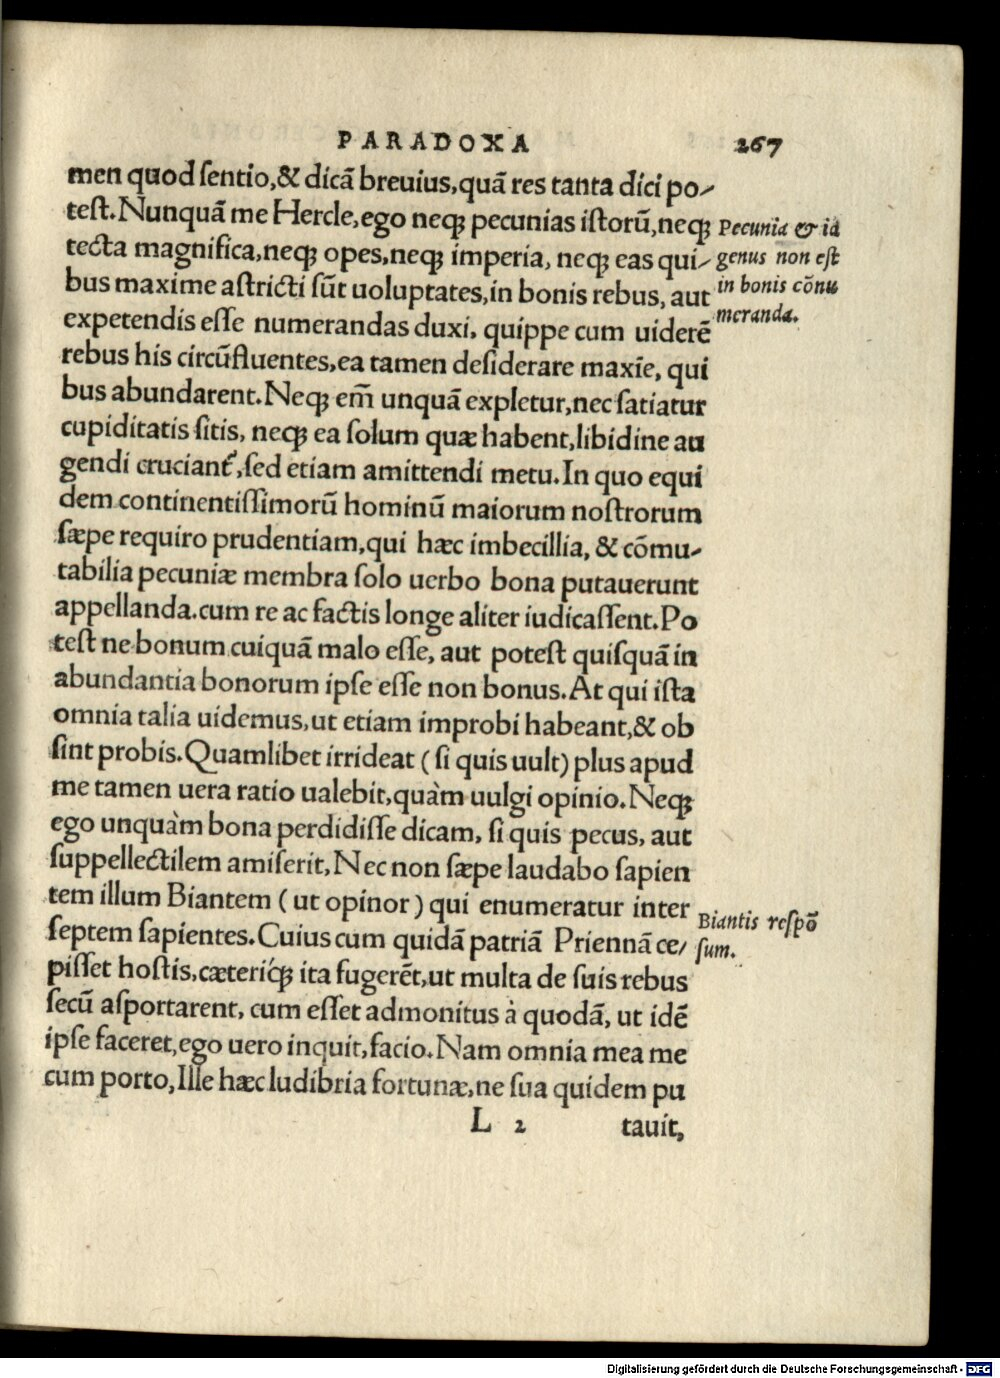 PARADOXA 267
men quod ſentio,& dicã breuius,quã res tanta dici po-
teſt.Nunquã me Hercle,ego neqꝫ pecunias iſtorũ,neqꝫ
tecta magnifica,neqꝫ opes,neqꝫ imperia, neqꝫ eas qui-
bus maxime aſtricti sũt uoluptates,in bonis rebus, aut
expetendis eſſe numerandas duxi, quippe cum uiderẽ
rebus his circũfluentes,ea tamen deſiderare maxĩe, qui
bus abundarent.Neqꝫ em̃ unquã expletur,nec ſatiatur
cupiditatis ſitis, neqꝫ ea ſolum quæ habent,libidine au
gendi cruciant᷑,ſed etiam amittendi metu.In quo equi
dem continentiſſimorũ hominũ maiorum noſtrorum
ſæpe requiro prudentiam,qui hæc imbecillia, & cõmu-
tabilia pecuniæ membra ſolo uerbo bona putauerunt
appellanda.cum re ac factis longe aliter iudicaſſent.Po
teſt ne bonum cuiquã malo eſſe, aut poteſt quiſquã in
abundantia bonorum ipſe eſſe non bonus.At qui iſta
omnia talia uidemus,ut etiam improbi habeant,& ob
ſint probis.Quamlibet irrideat (ſi quis uult) plus apud
me tamen uera ratio ualebit,quàm uulgi opinio.Neqꝫ
ego unquàm bona perdidiſſe dicam, ſi quis pecus, aut
ſuppellectilem amiſerit, Nec non ſæpe laudabo ſapien
tem illum Biantem (ut opinor) qui enumeratur inter
ſeptem ſapientes.Cuius cum quidã patriã Priennã ce-
piſſet hoſtis,cæteriq́ꝫ ita fugerẽt,ut multa de ſuis rebus
ſecũ aſportarent, cum eſſet admonitus à quodã, ut idẽ
ipſe faceret,ego uero inquit,facio.Nam omnia mea me
cum porto,Ille hæc ludibria fortunæ,ne ſua quidem pu
L 2 tauit,
Pecunia & id
genus non eſt
in bonis cõnu
meranda.
Biantis reſpõ
ſum.
Digitalisierung gefördert durch die Deutsche Forschungsgemeinschaft - DFG